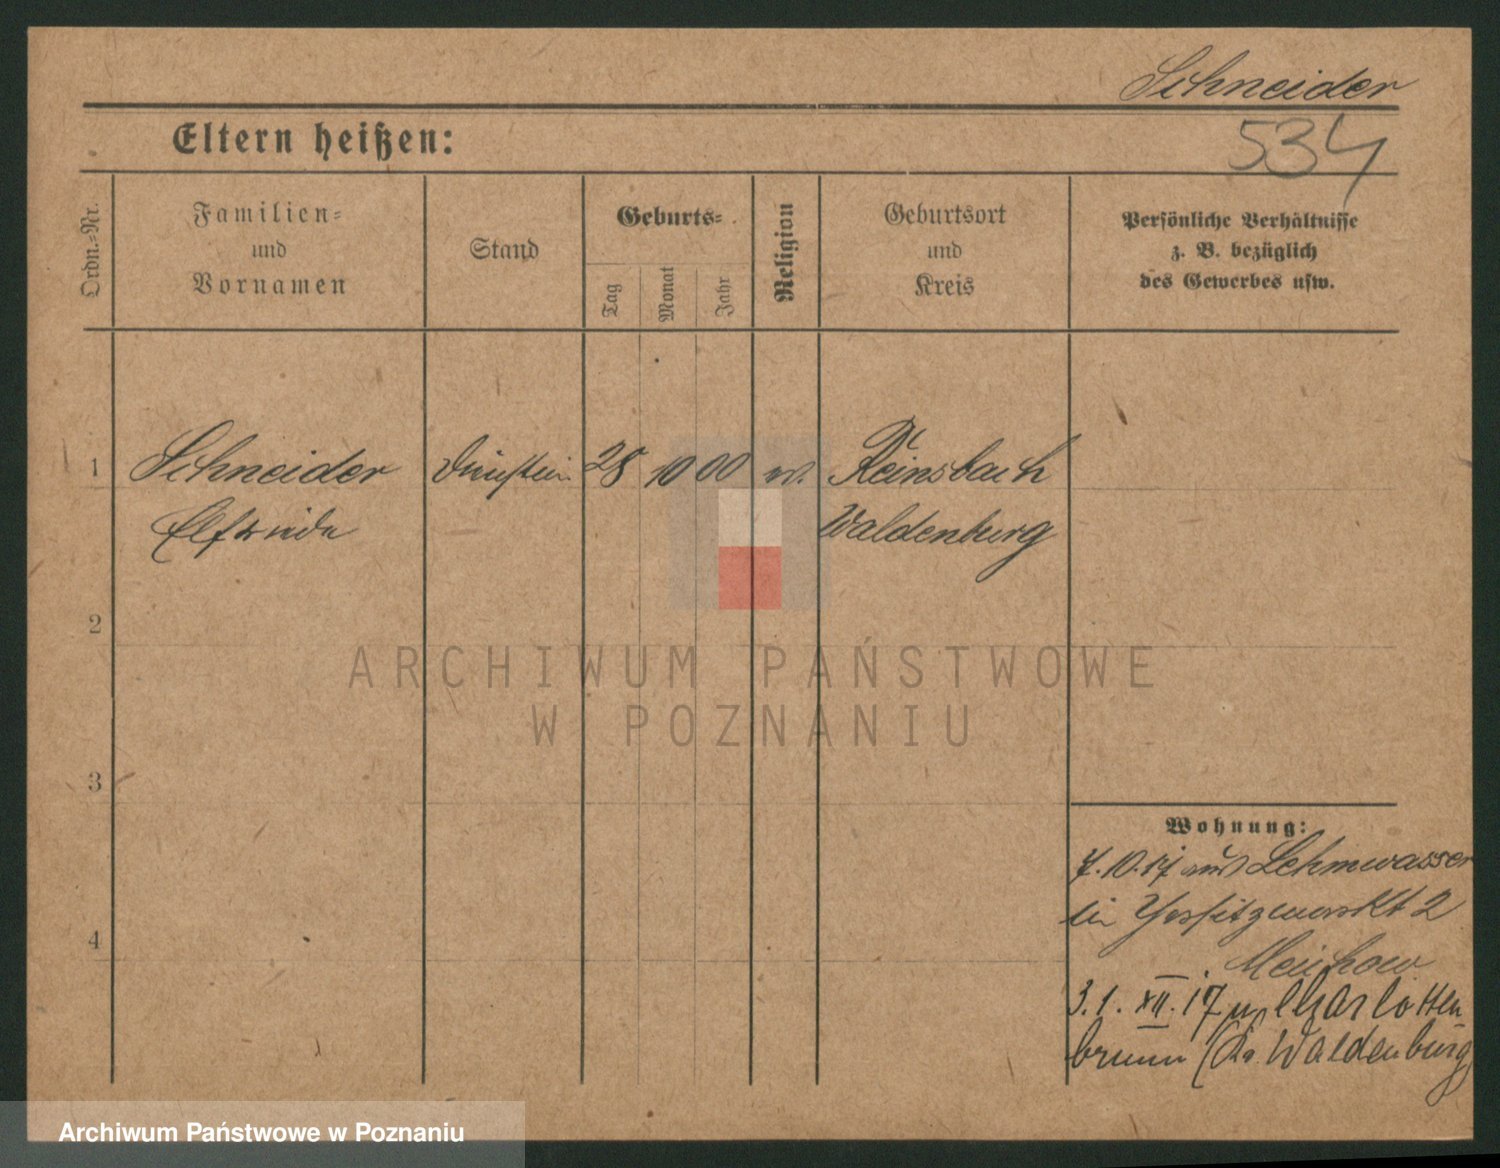 Schneider
534
Eltern heißen:
Ordn.=Nr.
Familien=
und
Vornamen
Stand
Geburts=
Tag
Monat
Jahr
Religion
Geburtsort
und
Kreis
Persönliche Verhältnisse
z. B. bezüglich
des Gewerbes usw.
1 Schneider 28 10 00 Reinsbach
Elfriede Waldenburg
2
3
4
Wohnung:
7.10.17 aus Lehmwasser
2
3.1.XII.17 n Charlotten
brunn (Kr. Waldenburg
ARCHIWUM PAŃSTWOWE
W POZNANIU
Archiwum Państwowe w Poznaniu